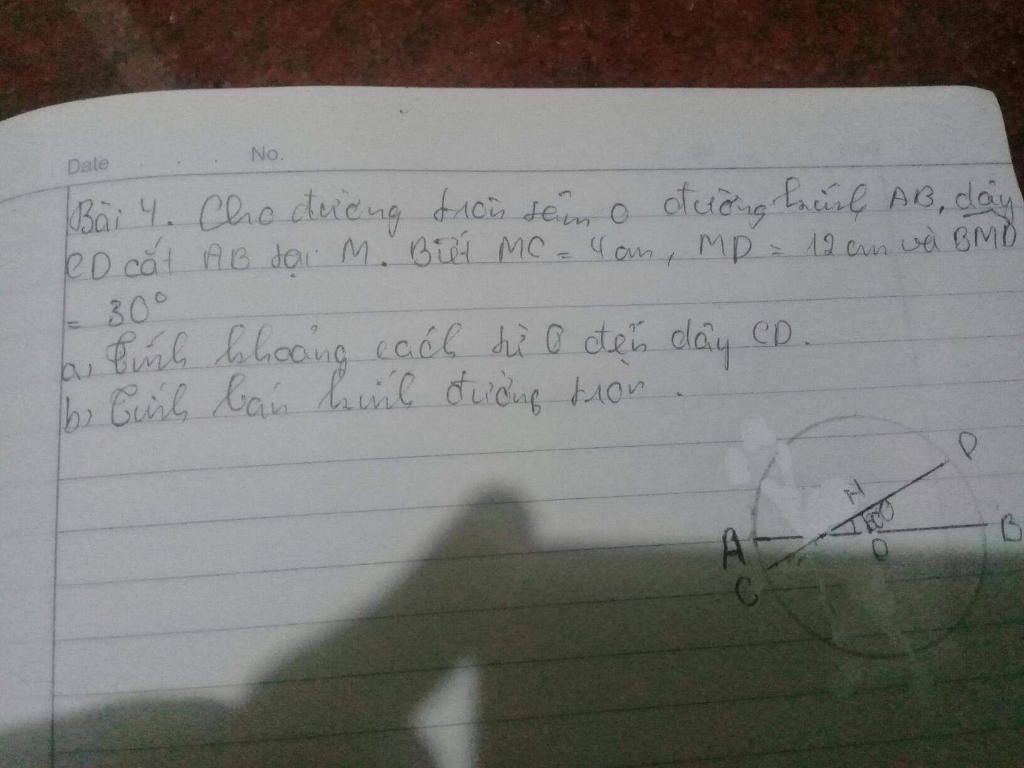 Date No.
Bài 4. Cho đường tròn tâm O đường kính AB, dây
CD cắt AB tại M. Biết MC = 4cm, MD = 12cm và BMD
= 30°
a, Tính khoảng cách từ O đến dây CD.
b, Tính bán kính đường tròn.
D
N
A
O
B
C